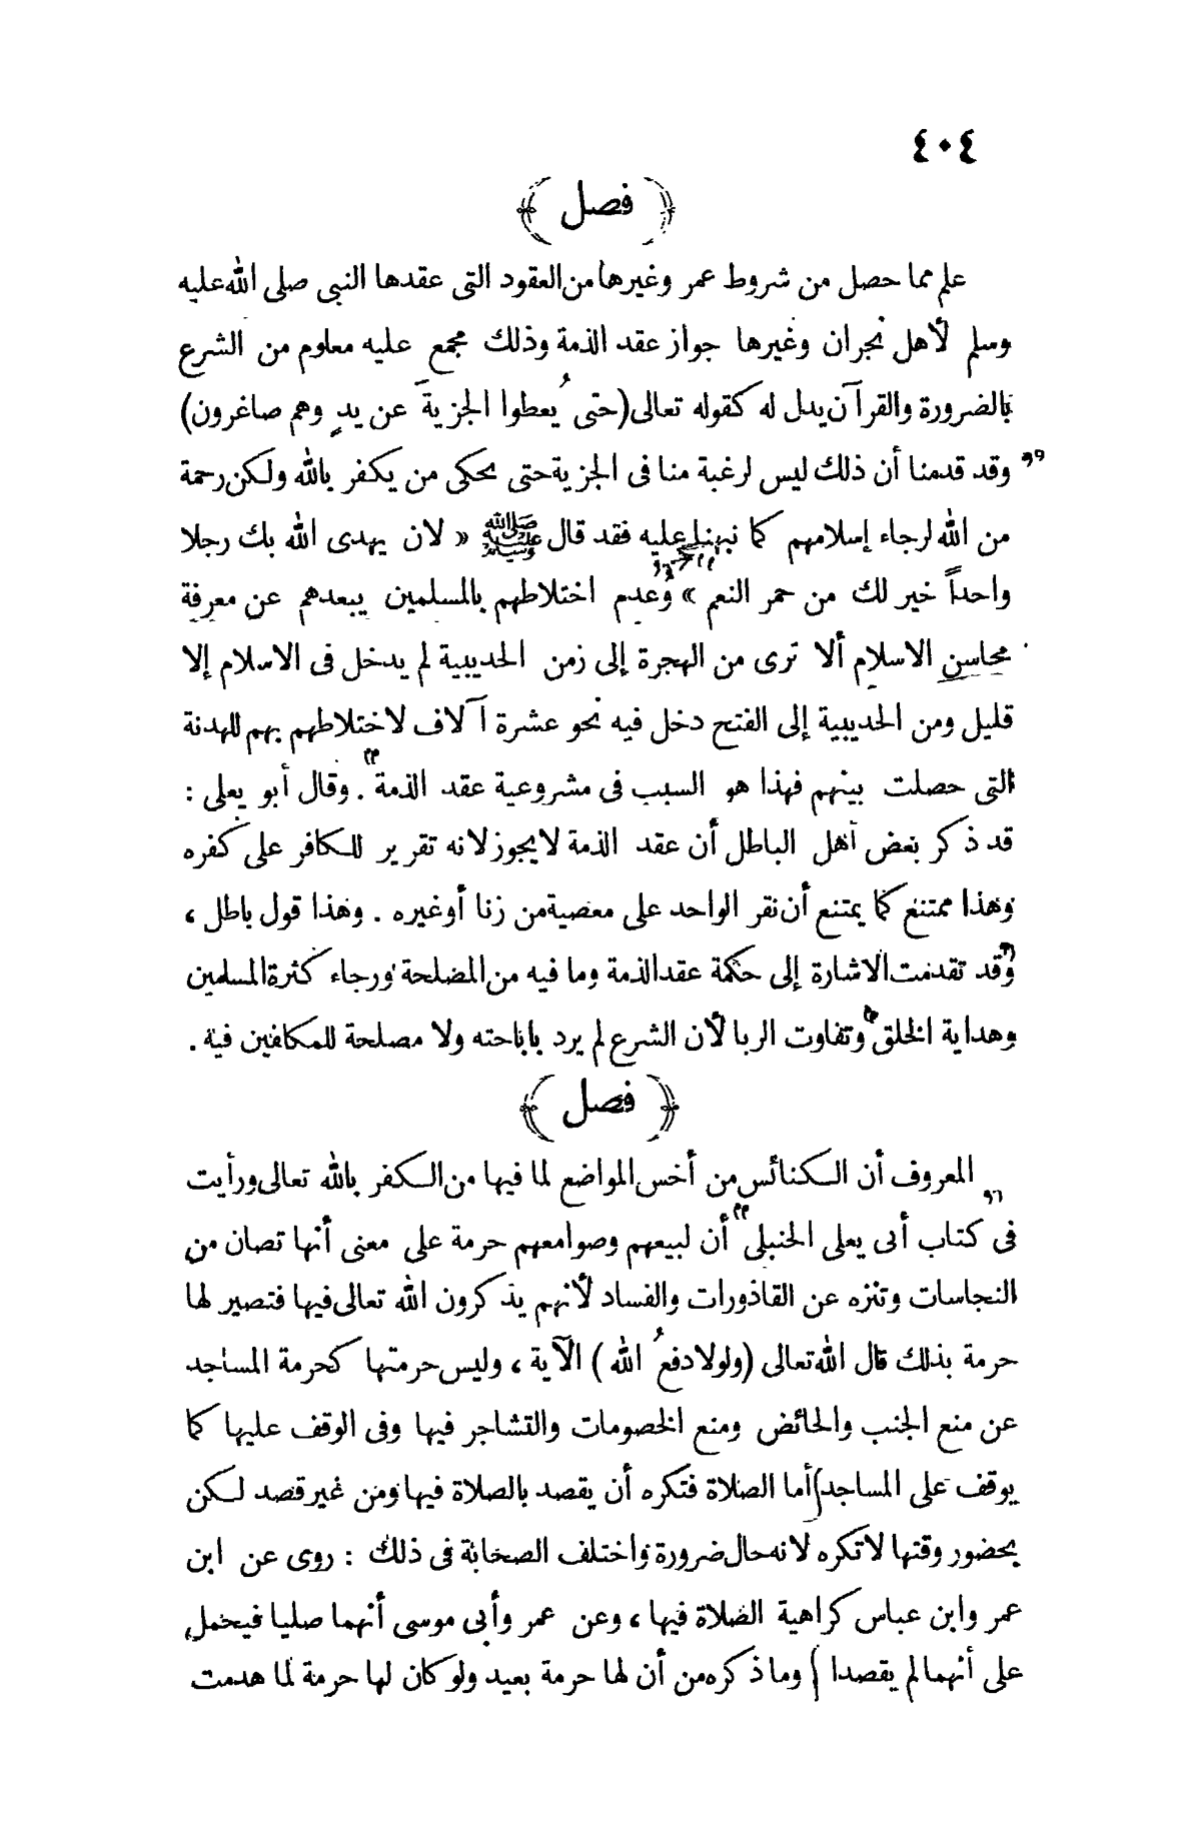 ٤٠٤
﴿ فصل ﴾
علم مما حصل من شروط عمر وغيرها من العقود التى عقدها النبى صلى الله عليه
وسلم لأهل نجران وغيرها جواز عقد الذمة وذلك مجمع عليه معلوم من الشرع
بالضرورة والقرآن يدل له كقوله تعالى (حتى يُعطوا الجزيةَ عن يدٍ وهم صاغرون)
وقد قدمنا أن ذلك ليس لرغبة منا فى الجزية حتى يحكى من يكفر بالله ولكن رحمة
من الله لرجاء إسلامهم كما نبهنا عليه فقد قال ﷺ « لان يهدى الله بك رجلا
واحداً خير لك من حمر النعم » وعدم اختلاطهم بالمسلمين يبعدهم عن معرفة
محاسن الاسلام ألا ترى من الهجرة إلى زمن الحديبية لم يدخل فى الاسلام إلا
قليل ومن الحديبية إلى الفتح دخل فيه نحو عشرة آلاف لاختلاطهم بهم للهدنة
التى حصلت بينهم فهذا هو السبب فى مشروعية عقد الذمة . وقال أبو يعلى :
قد ذكر بعض أهل الباطل أن عقد الذمة لا يجوز لانه تقرير للكافر على كفره
وهذا ممتنع كما يمتنع أن نقر الواحد على معصية من زنا أو غيره . وهذا قول باطل ،
وقد تقدمت الاشارة إلى حكمة عقد الذمة وما فيه من المصلحة ورجاء كثرة المسلمين
وهداية الخلق وتفاوت الربا لأن الشرع لم يرد باباحته ولا مصلحة للمكافين فيه .
﴿ فصل ﴾
المعروف أن الكنائس من أخس المواضع لما فيها من الكفر بالله تعالى ورأيت
فى كتاب أبى يعلى الحنبلى أن لبيعهم وصوامعهم حرمة على معنى أنها تصان من
النجاسات وتنزه عن القاذورات والفساد لأنهم يذكرون الله تعالى فيها فتصير لها
حرمة بذلك قال الله تعالى (ولولا دفعُ الله) الآية ، وليس حرمتها كحرمة المساجد
عن منع الجنب والحائض ومنع الخصومات والتشاجر فيها وفى الوقف عليها كما
يوقف على المساجد أما الصلاة فتكره أن يقصد بالصلاة فيها ومن غير قصد لكن
بحضور وقتها لا تكره لانه حال ضرورة واختلف الصحابة فى ذلك : روى عن ابن
عمر وابن عباس كراهية الصلاة فيها ، وعن عمر وأبى موسى أنهما صليا فيحمل
على أنهما لم يقصدا وما ذكره من أن لها حرمة بعيد ولو كان لها حرمة لما هدمت